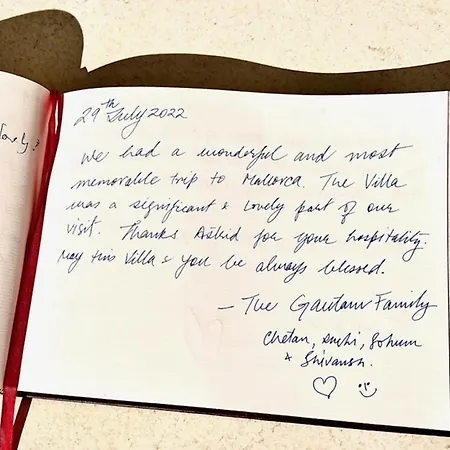 lovely?
29th July 2022
We had a wonderful and most
memorable trip to Mallorca. The Villa
was a significant & lovely part of our
visit. Thanks Astrid for your hospitality.
May this Villa & you be always blessed.
- The Gautam Family
Chetan, Suchi, Sohum
& Shivansh.